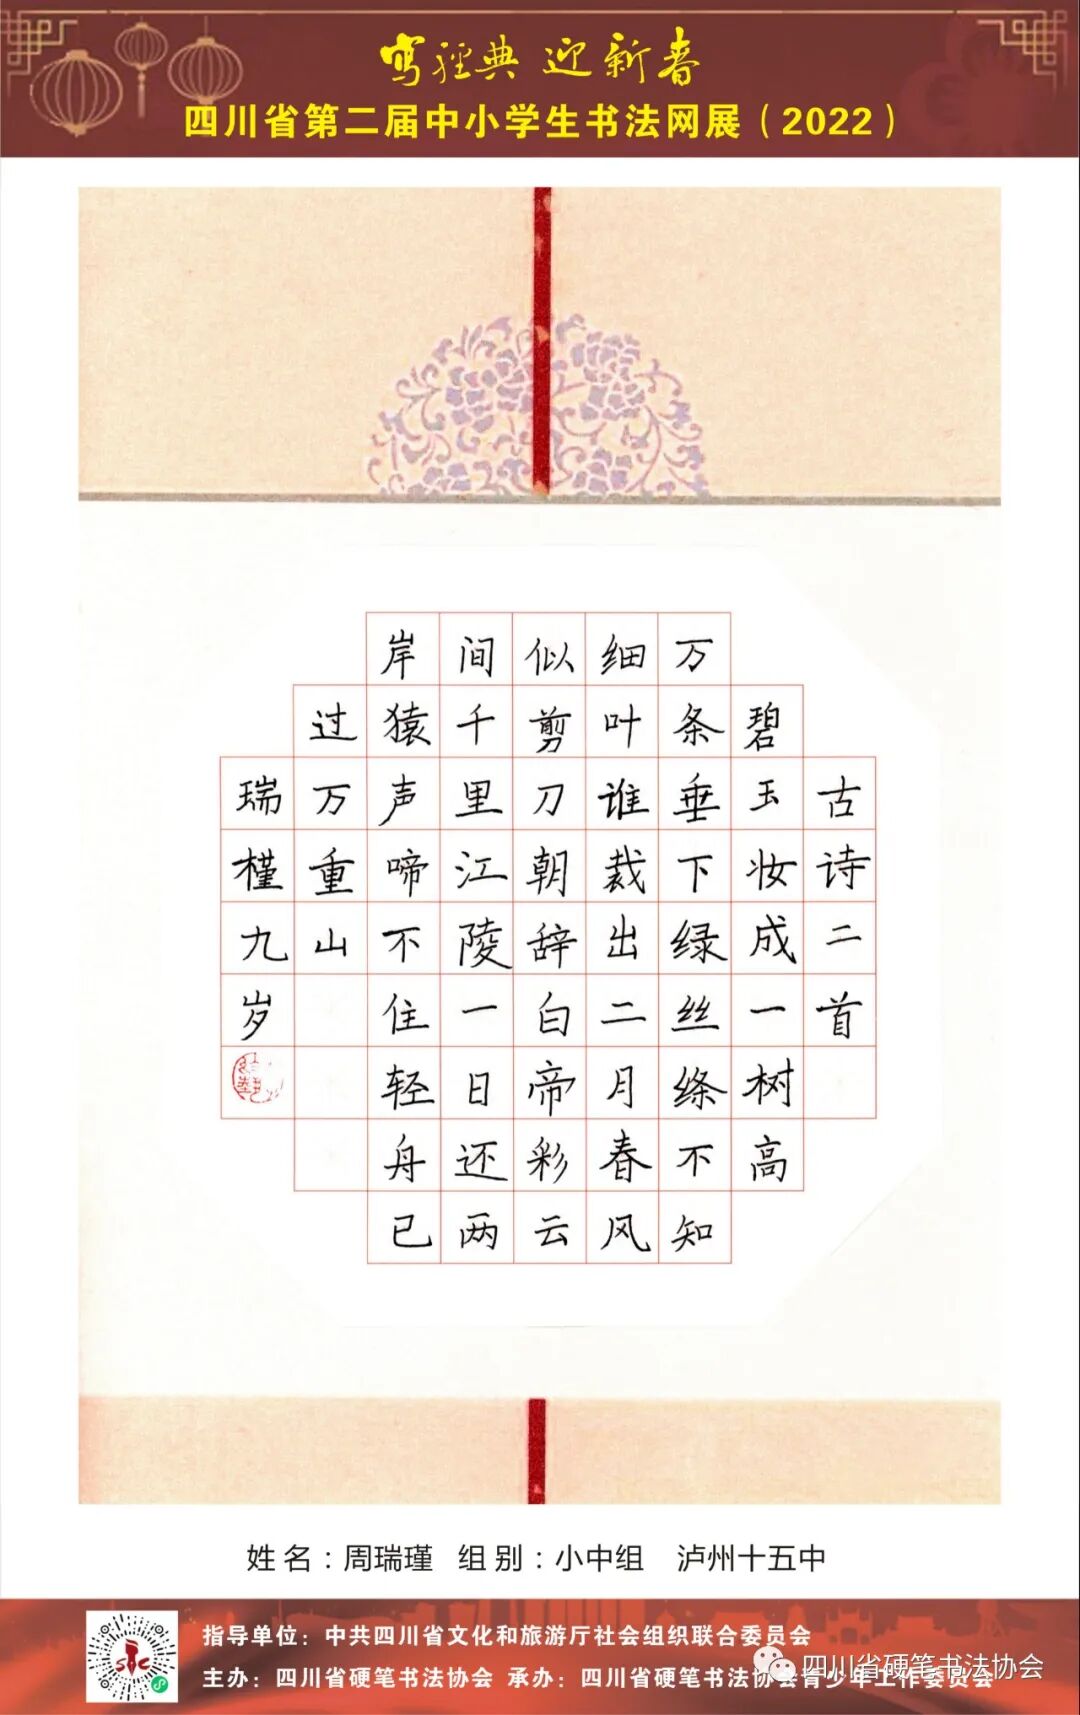 写经典 迎新春
四川省第二届中小学生书法网展（2022）
古诗二首
碧玉妆成一树高
万条垂下绿丝绦不知
细叶谁裁出二月春风
似剪刀朝辞白帝彩云
间千里江陵一日还两
岸猿声啼不住轻舟已
过万重山
瑞槿九岁
姓名：周瑞瑾 组别：小中组 泸州十五中
指导单位：中共四川省文化和旅游厅社会组织联合委员会
主办：四川省硬笔书法协会 承办：四川省硬笔书法协会青少年工作委员会
四川省硬笔书法协会